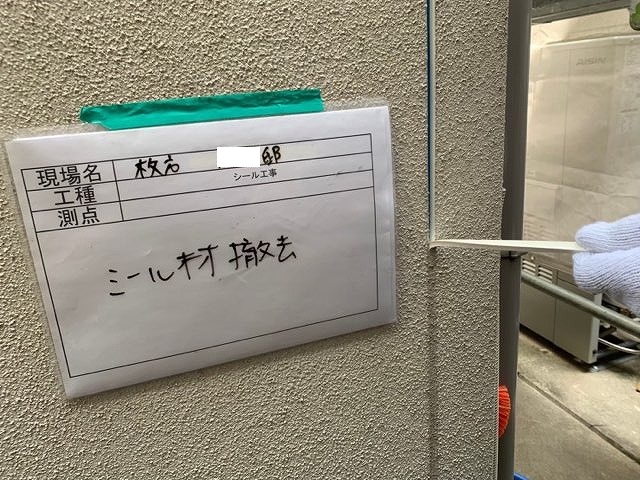 現場名 枚方 邸
工種 シール工事
測点
シール材 撤去
AISIN